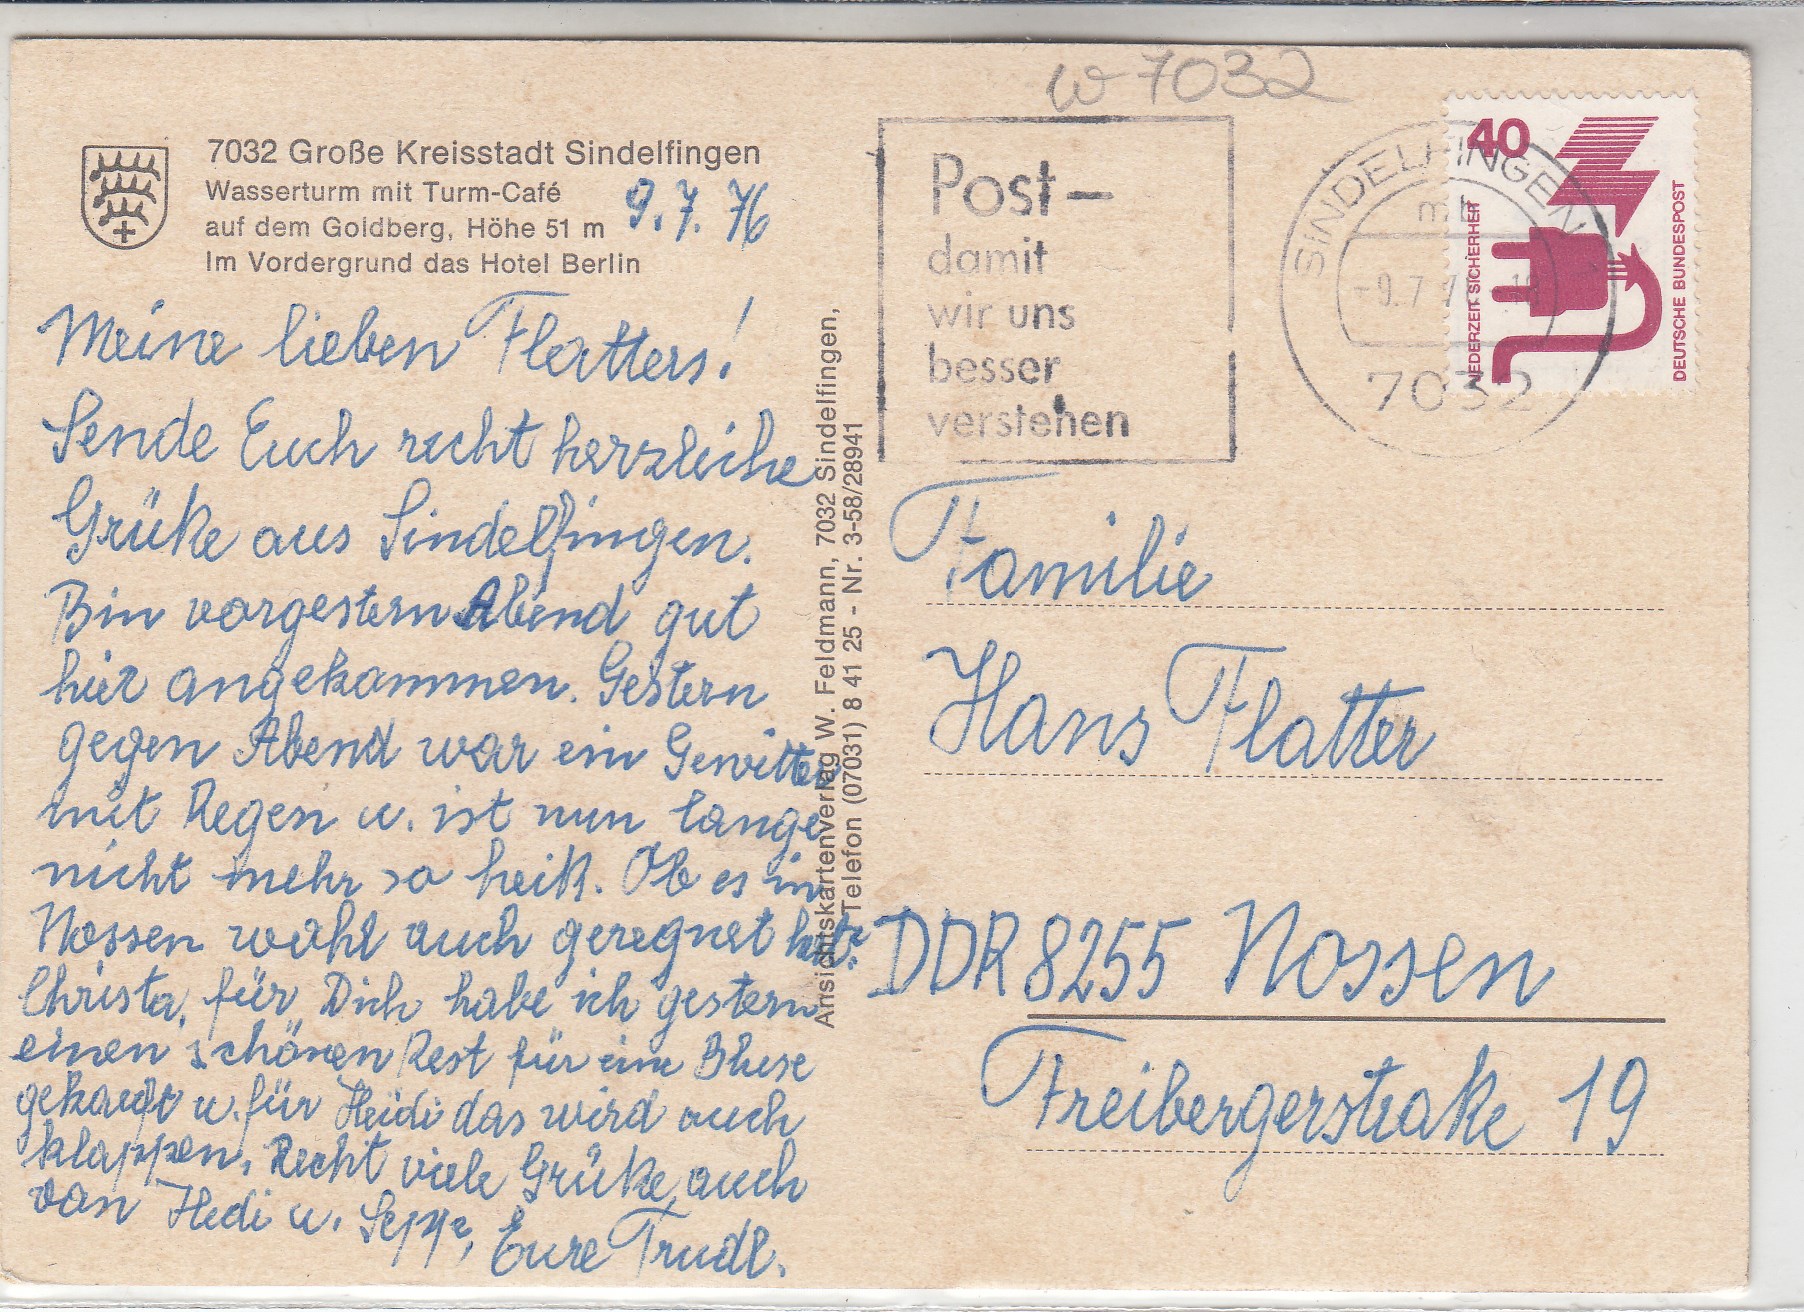 w 7032
7032 Große Kreisstadt Sindelfingen
Wasserturm mit Turm-Café
auf dem Goldberg, Höhe 51 m
Im Vordergrund das Hotel Berlin
9.7.76
Meine lieben Flatters!
Sende Euch recht herzliche
Grüße aus Sindelfingen.
Bin vorgestern Abend gut
hier angekommen. Gestern
gegen Abend war ein Gewitter
mit Regen u. ist nun lange
nicht mehr so heiß. Ob es in
Nossen wohl auch geregnet hat?
Christa, für Dich habe ich gestern
einen schönen Rest für eine Bluse
gekauft u. für Heidi das wird auch
klappen. Recht viele Grüße, auch
von Hedi u. Sepp, Eure Trudl.
Ansichtskartenverlag W. Feldmann, 7032 Sindelfingen,
Telefon (07031) 8 41 25 - Nr. 3-58/28941
Post-
damit
wir uns
besser
verstehen
SINDELFINGEN
7032
40
JEDERZEIT SICHERHEIT
DEUTSCHE BUNDESPOST
Familie
Hans Flatter
DDR 8255 Nossen
Freibergerstraße 19